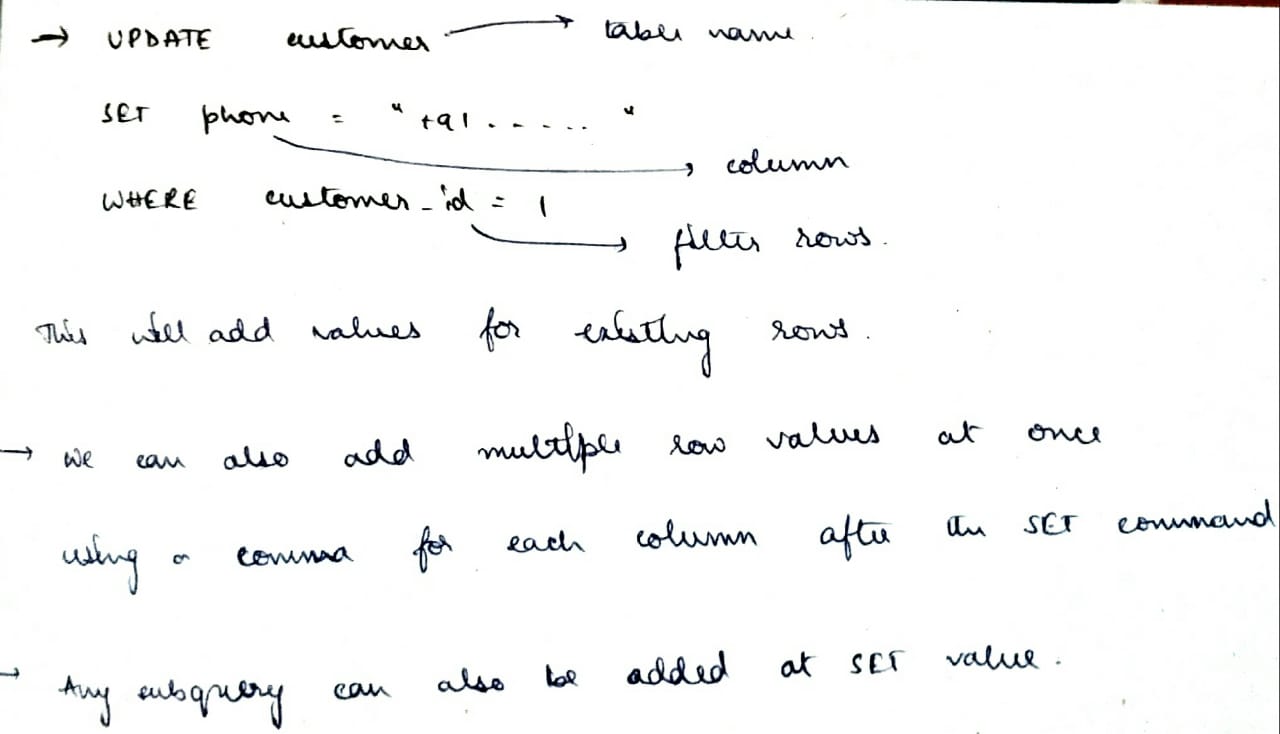 → UPDATE customer → table name.
SET phone = "+91......"
→ column
WHERE customer_id = 1
→ filter rows.
This will add values for existing rows.
→ We can also add multiple row values at once
using a comma for each column after the SET command
→ Any subquery can also be added at SET value.